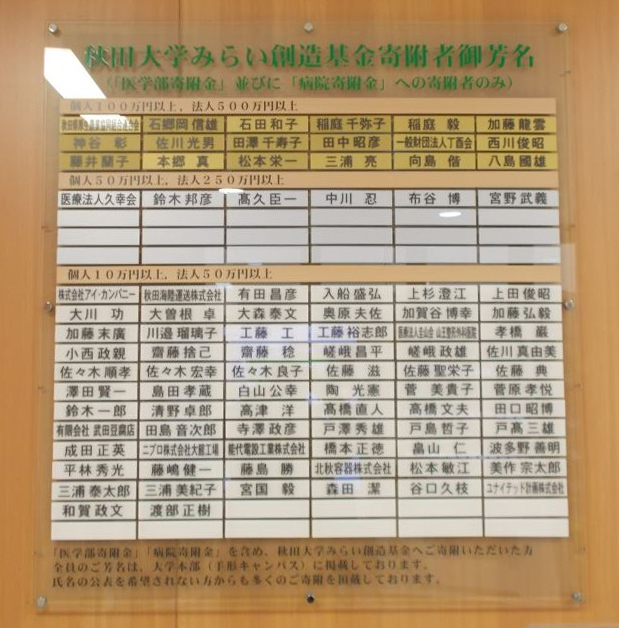 秋田大学みらい創造基金寄附者御芳名
(「医学部寄附金」並びに「病院寄附金」への寄附者のみ)
個人100万円以上，法人500万円以上
石郷岡信雄 石田和子 稲庭千弥子 稲庭 毅 加藤龍雲
神谷 彰 佐川光男 田澤千寿子 田中昭彦 一般財団法人丁酉会 西川俊昭
藤井蘭子 本郷 真 松本栄一 三浦 亮 向島 偕 八島國雄
個人50万円以上，法人250万円以上
医療法人久幸会 鈴木邦彦 髙久臣一 中川 忍 布谷 博 宮野武義
個人10万円以上，法人50万円以上
株式会社アイ・カンパニー 秋田海陸運送株式会社 有田昌彦 入船盛弘 上杉澄江 上田俊昭
大川 功 大曽根 卓 大森泰文 奥原夫佐 加賀谷博幸 加藤弘毅
加藤末廣 川邉瑠璃子 工藤 工 工藤裕志郎 孝橋 巖
小西政親 齋藤捨己 齋藤 稔 嵯峨昌平 嵯峨政雄 佐川真由美
佐々木順孝 佐々木宏幸 佐々木良子 佐藤 滋 佐藤聖栄子 佐藤 典
澤田賢一 島田孝蔵 白山公幸 陶 光憲 菅 美貴子 菅原孝悦
鈴木一郎 清野卓郎 高津 洋 髙橋直人 高橋文夫 田口昭博
有限会社 武田豆腐店 田島音次郎 寺澤政彦 戸澤秀雄 戸島哲子 戸髙三雄
成田正英 ニプロ株式会社大館工場 能代電設工業株式会社 橋本正徳 畠山 仁 波多野善明
平林秀光 藤嶋健一 藤島 勝 北秋容器株式会社 松本敏江 美作宗太郎
三浦泰太郎 三浦美紀子 宮国 毅 森田 潔 谷口久枝 ユナイテッド計画株式会社
和賀政文 渡部正樹
「医学部寄附金」「病院寄附金」を含め，秋田大学みらい創造基金へご寄附いただいた方
全員のご芳名は，大学本部（手形キャンパス）に掲載しております。
氏名の公表を希望されない方からも多くのご寄附を頂戴しております。